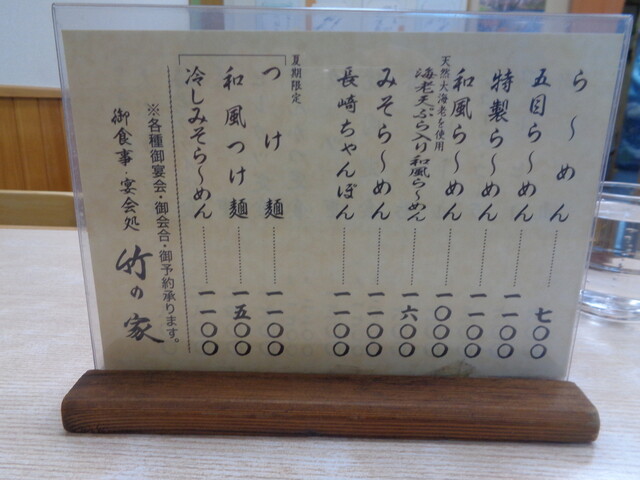 ら〜めん……七〇〇
五目ら〜めん……一一〇〇
特製ら〜めん……一一〇〇
和風ら〜めん……一〇〇〇
天然大海老を使用
海老天ぷら入り和風ら〜めん……一六〇〇
みそら〜めん……一一〇〇
長崎ちゃんぽん……一一〇〇
夏期限定
つけ麺……一一〇〇
和風つけ麺……一五〇〇
冷しみそら〜めん……一一〇〇
※各種御宴会・御会合・御予約承ります。
御食事・宴会処 竹の家